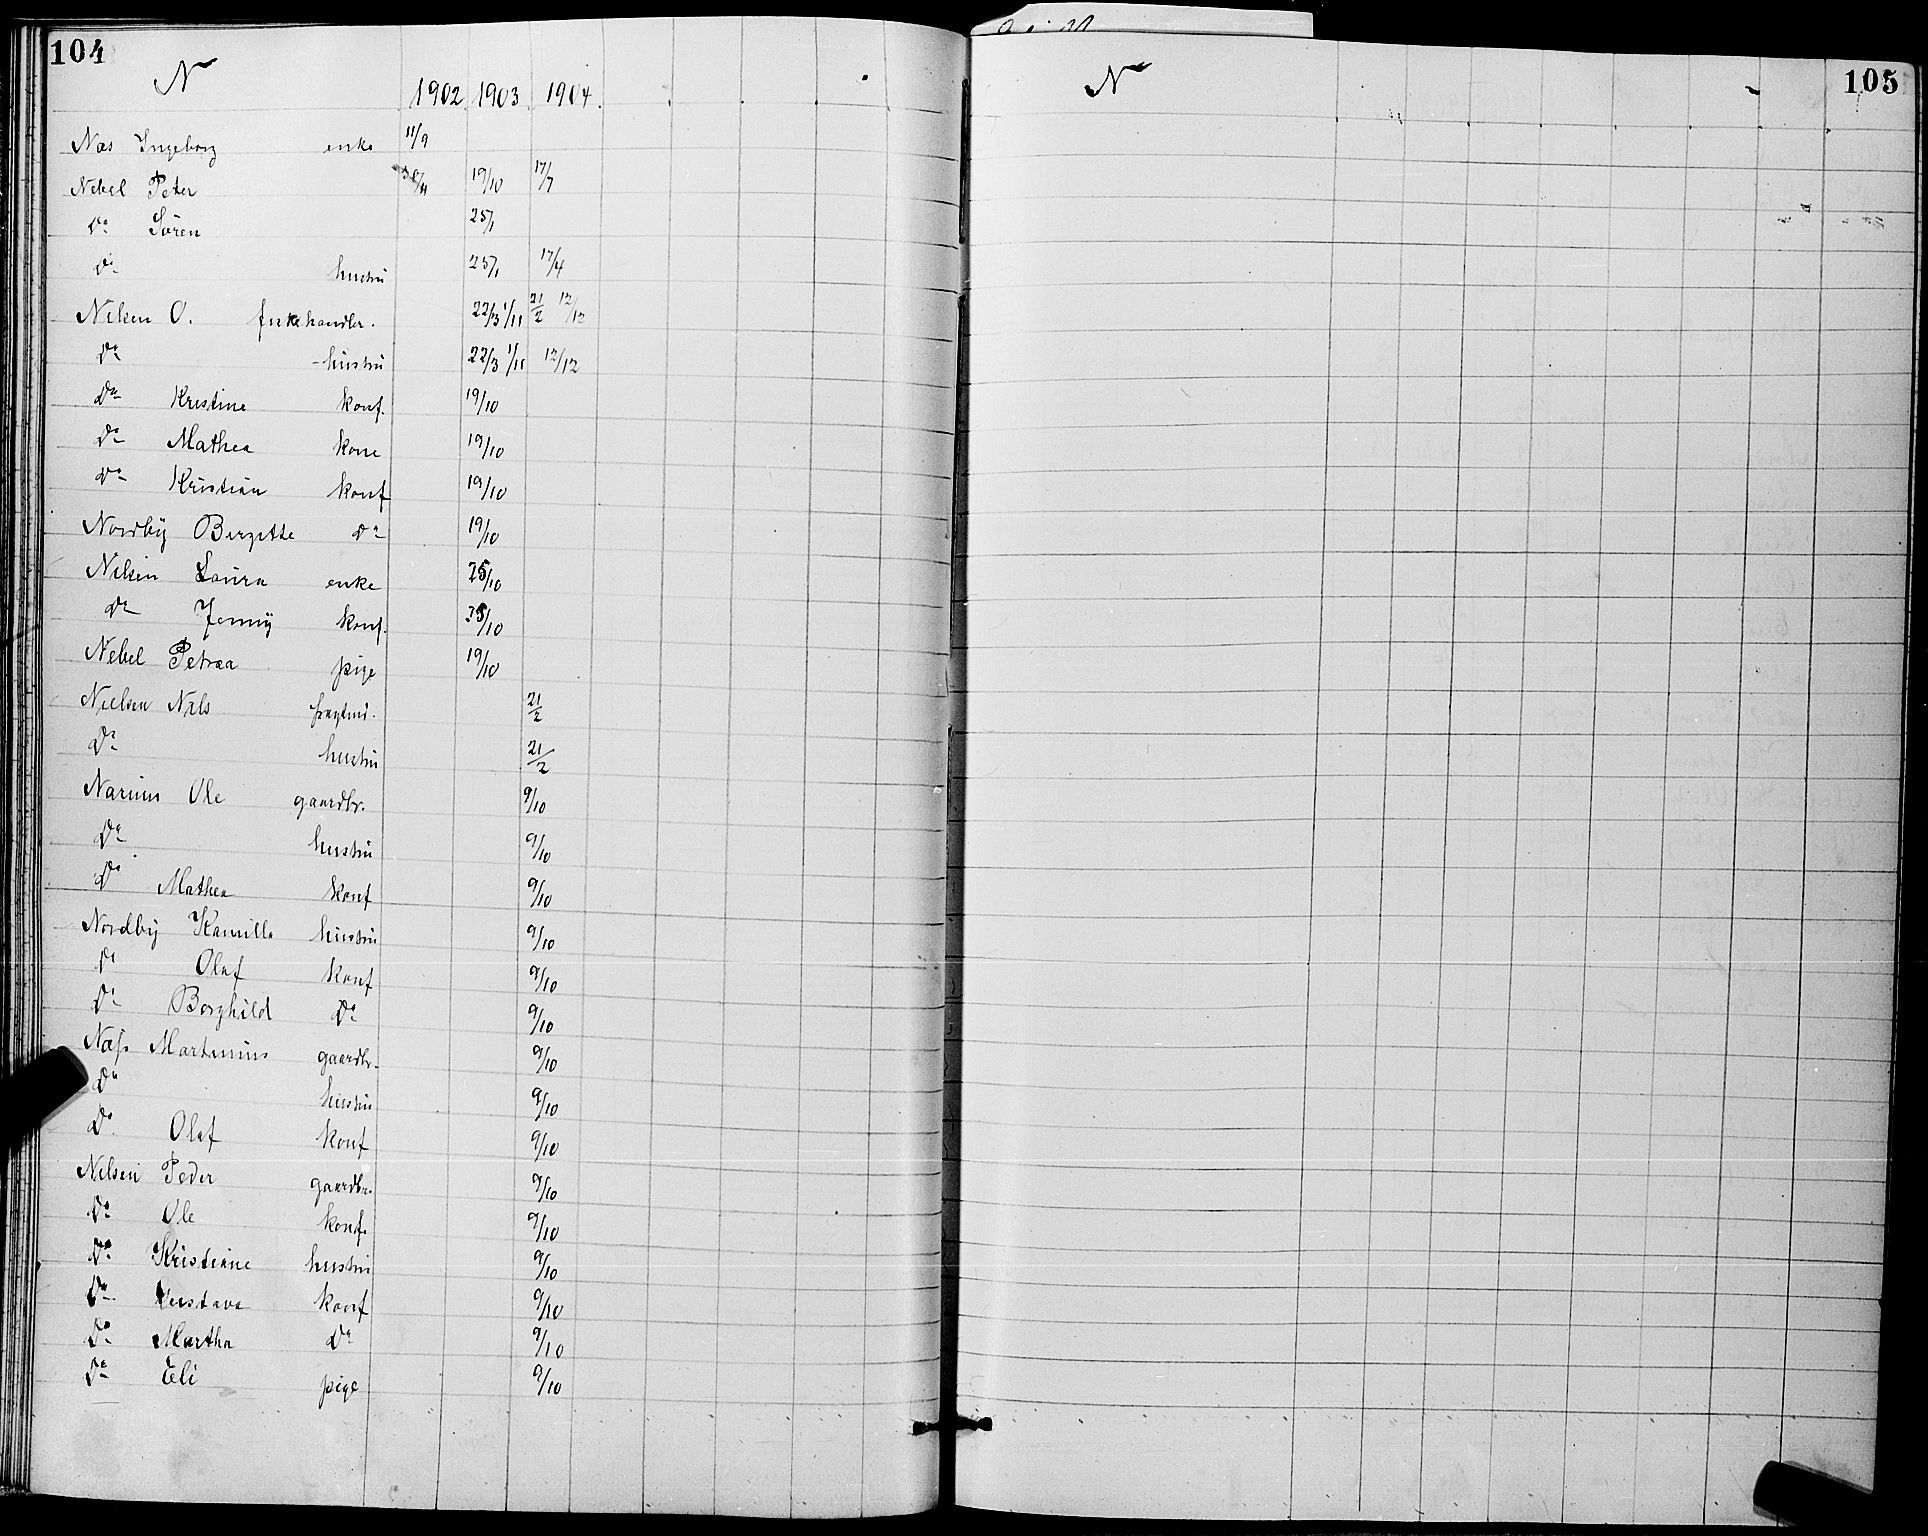 104
N
1902 1903 1904.
Næs Ingeborg enke 11/9
Nebel Peter 30/11 19/10 17/7
Do Søren 25/1
Do hustru 25/1 17/4
Nelsen O. fiskehandler. 22/3 1/11 21/2 12/12
Do hustru 22/3 1/11 12/12
Do Kristine konf. 19/10
Do Mathea kone 19/10
Do Kristian konf 19/10
Nordby Birgitte Do 19/10
Nilsen Laura enke 25/10
Do Jenny konf. /10
Nebel Petraa pige 19/10
Nielsen Nils fragtm. 21/2
Do hustru 21/2
Narum Ole gaardbr. 9/10
Do hustru 9/10
Do Mathea konf 9/10
Nordby Kamilla hustru 9/10
Do Olaf konf 9/10
Do Borghild Do 9/10
Næss Martinius gaardbr. 9/10
Do hustru 9/10
Do Olaf konf 9/10
Nilsen Peder gaardbr. 9/10
Do Ole konf. 9/10
Do Kristiane hustru 9/10
Do Gustava konf 9/10
Do Martha Do 9/10
Do Eli pige 9/10
N
105